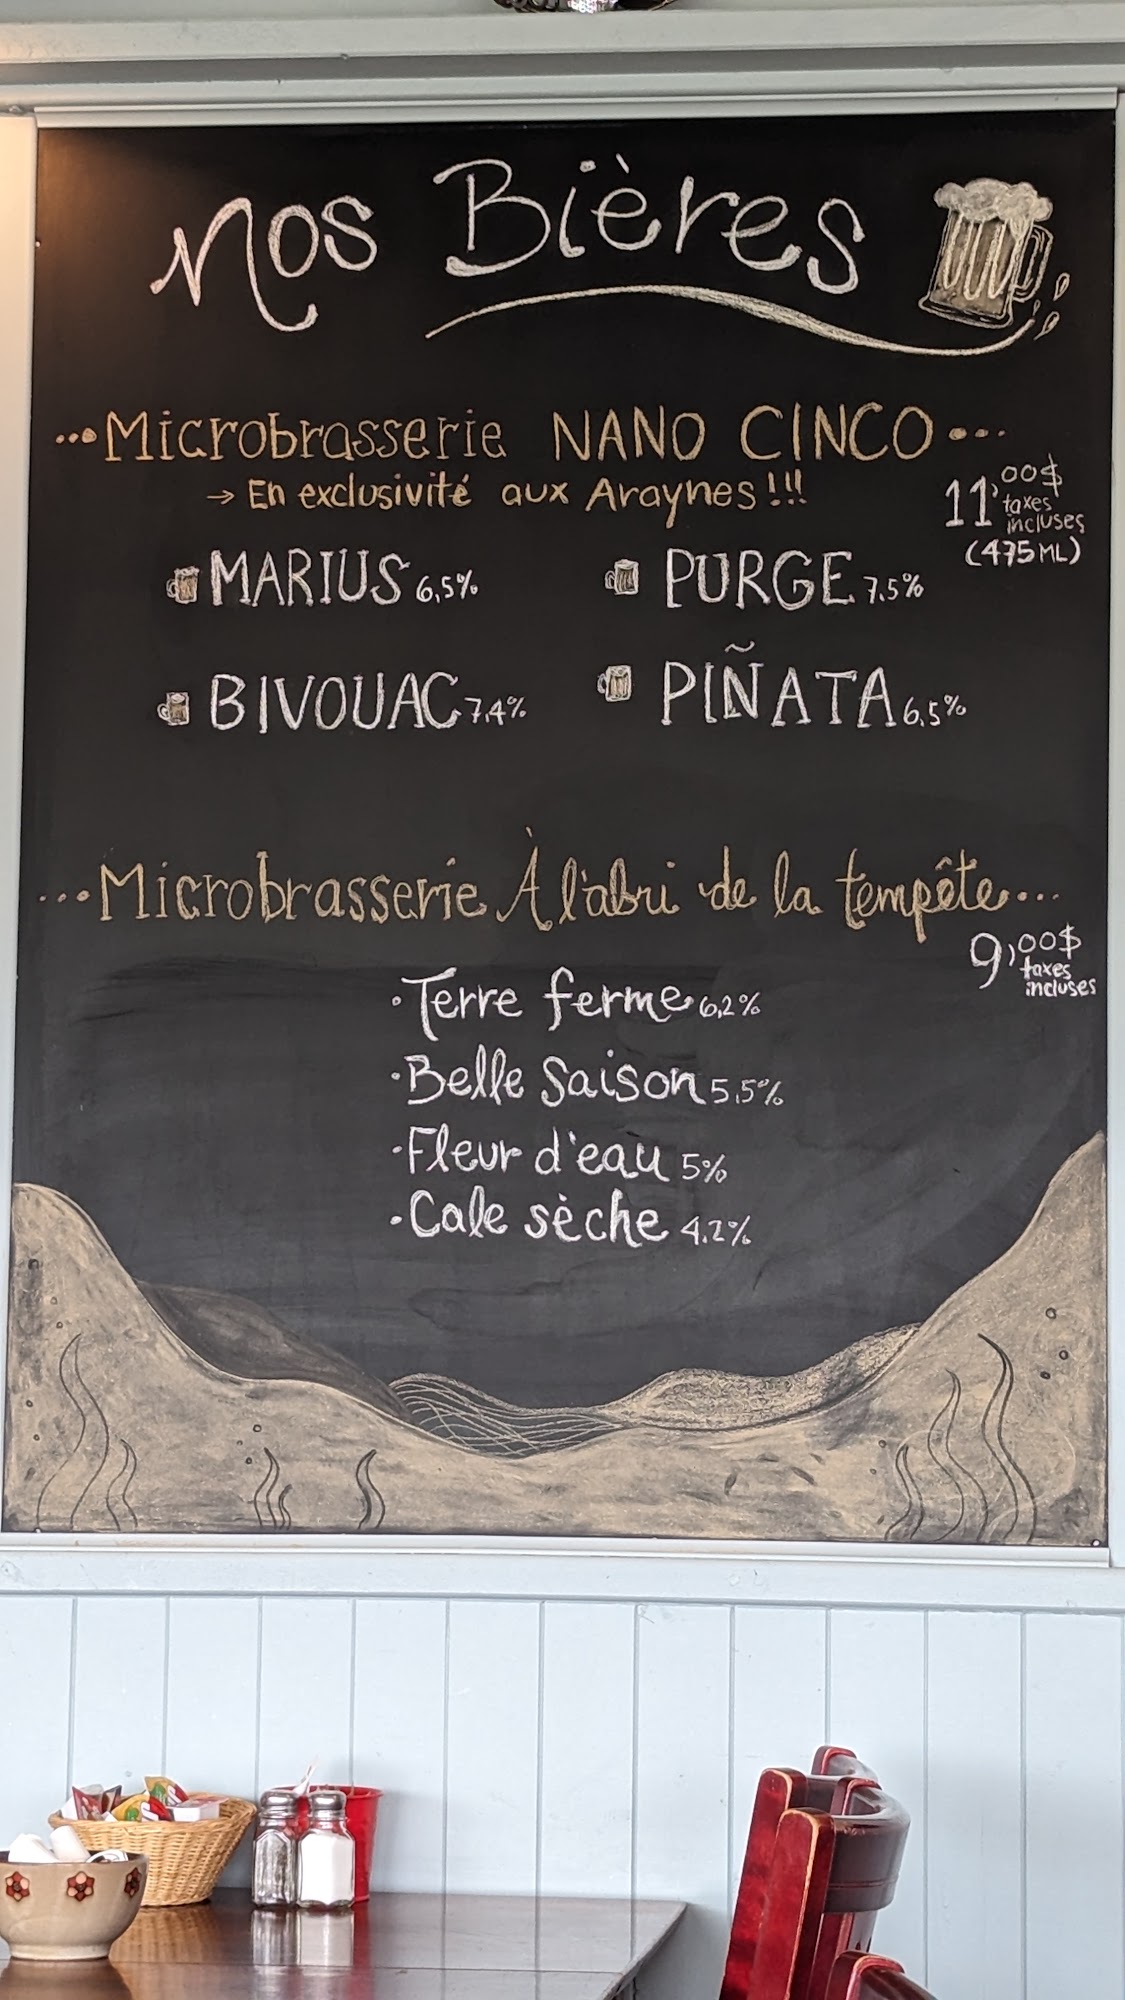 Nos Bières
...Microbrasserie NANO CINCO...
→ En exclusivité aux Araynes!!!
11,00$
taxes
incluses
(475ML)
MARIUS 6,5% PURGE 7.5%
BIVOUAC 7,4% PIÑATA 6,5%
...Microbrasserie À l'abri de la tempête...
9,00$
taxes
incluses
·Terre ferme 6,2%
·Belle Saison 5,5%
·Fleur d'eau 5%
·Cale sèche 4.2%